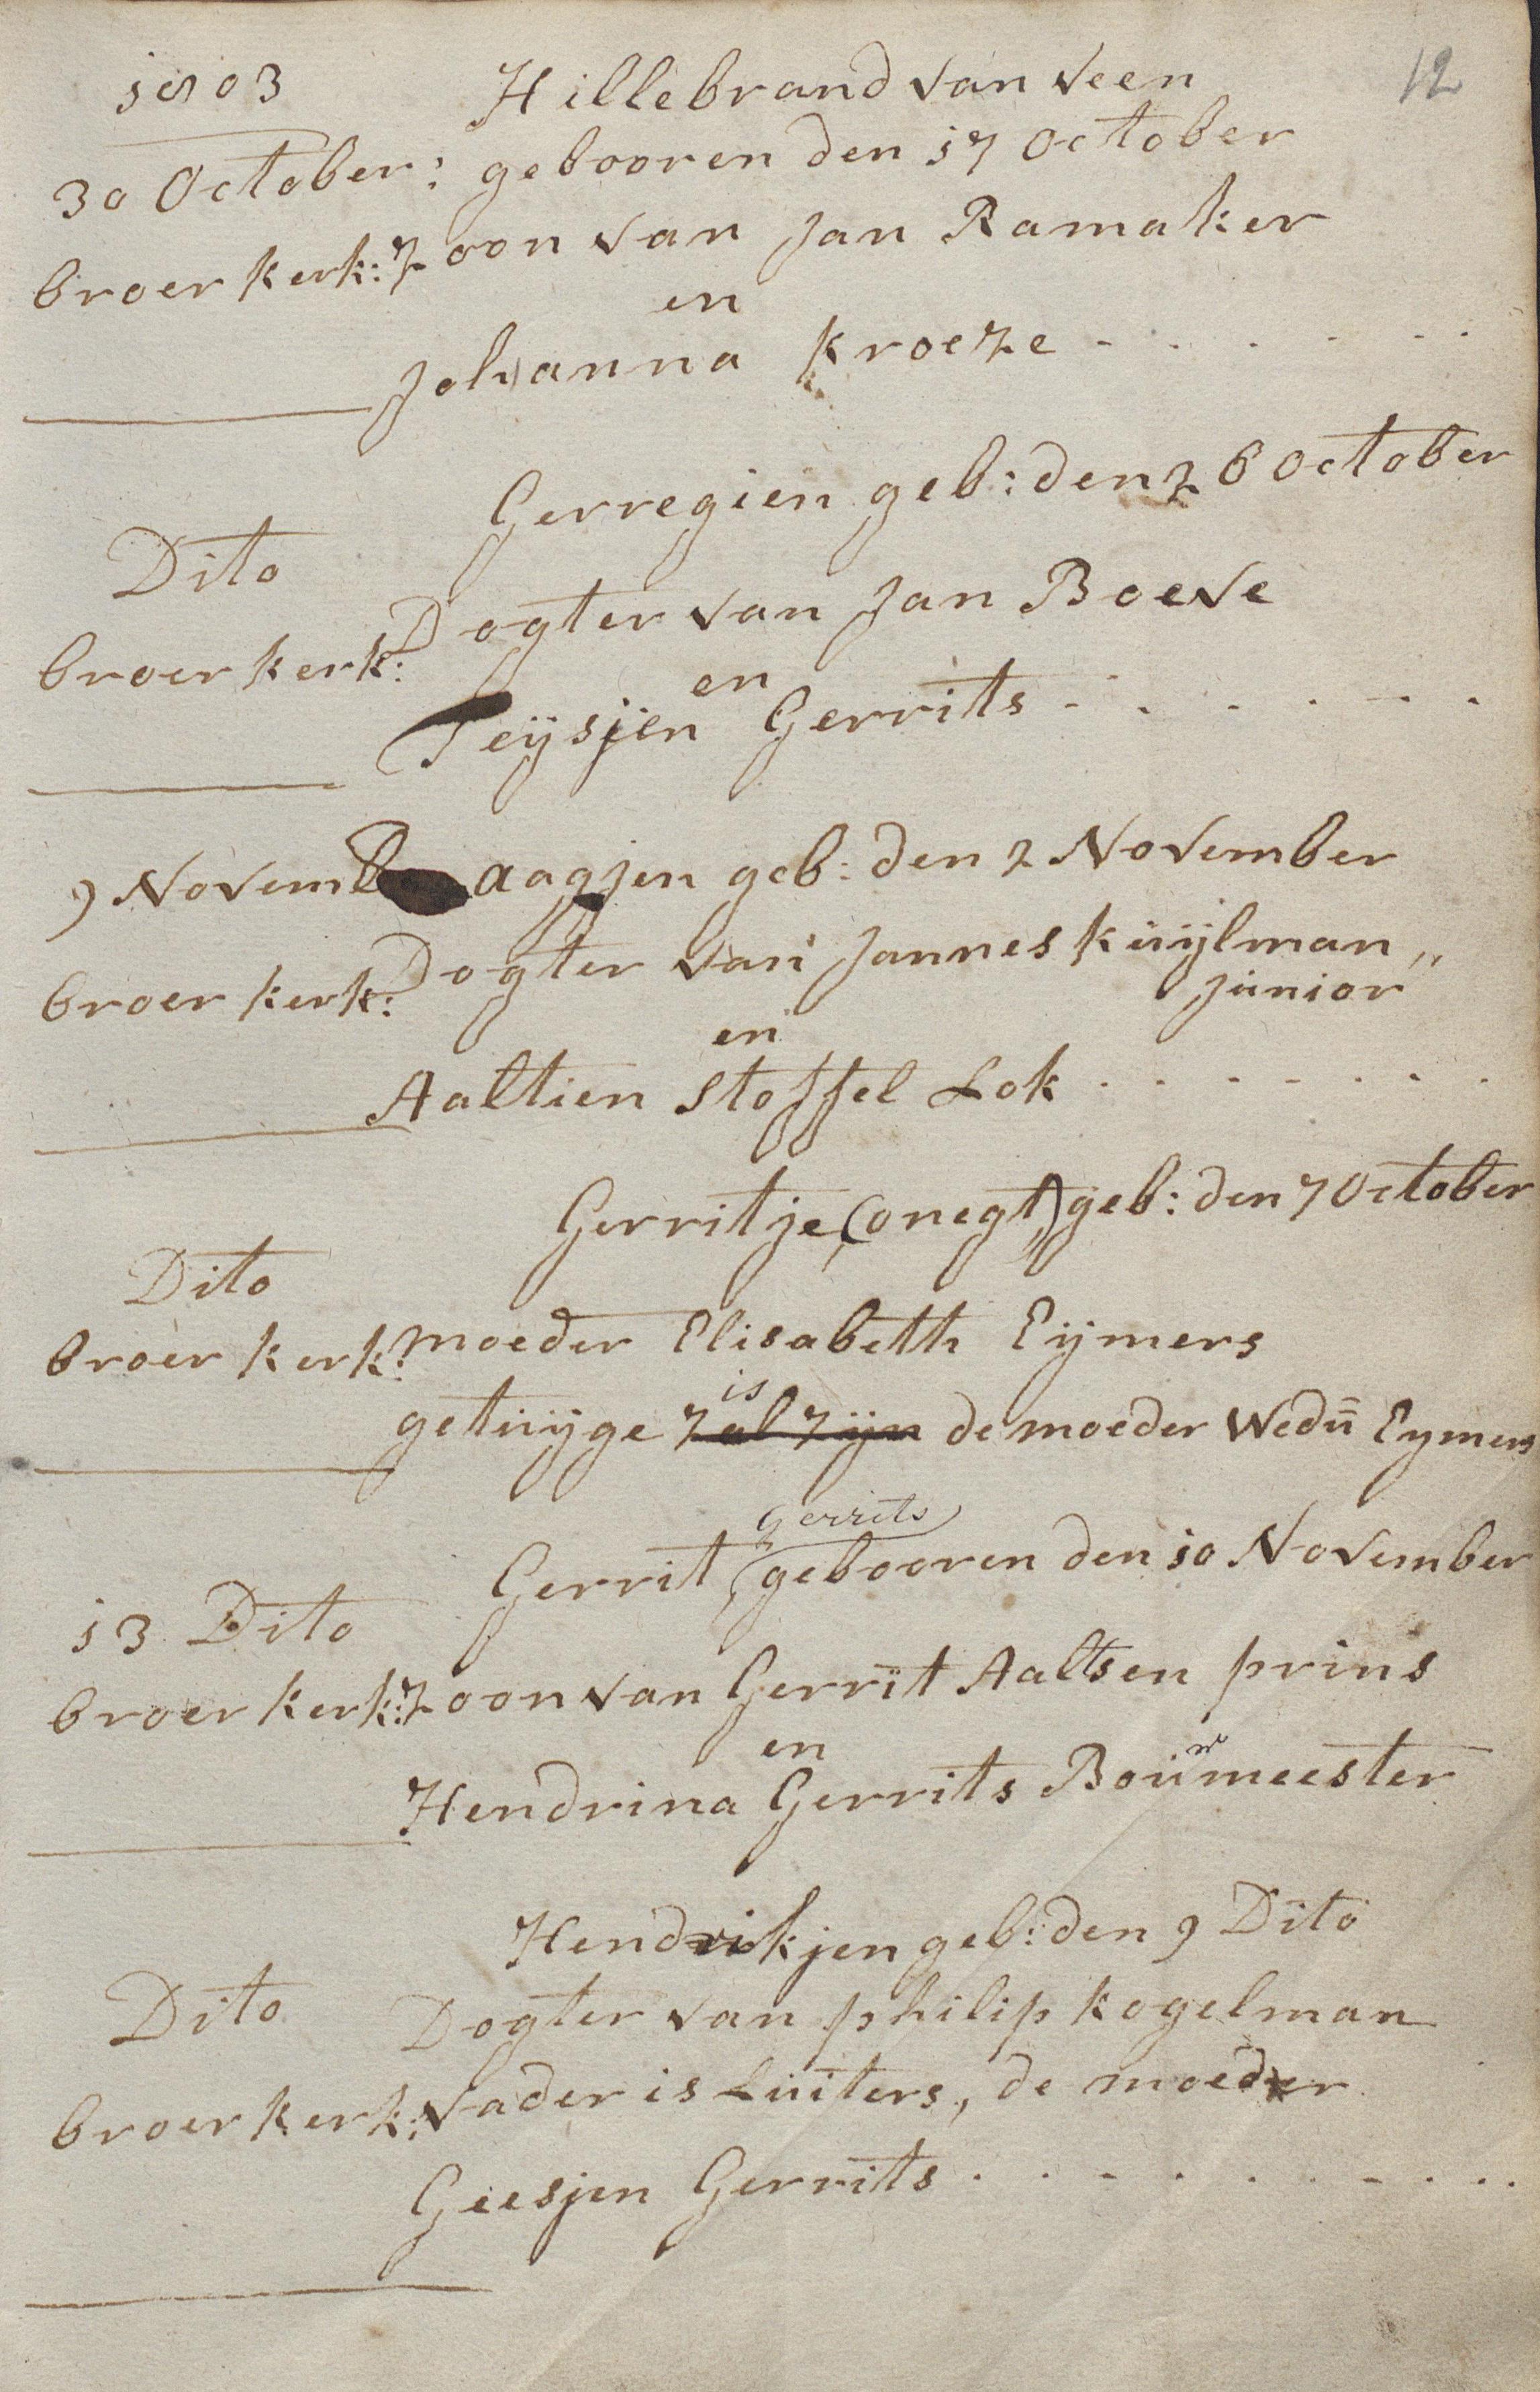 12
1803 Hillebrand van Veen
30 October: gebooren den 17 October
broer kerk: zoon van Jan Ramaker
en
Johanna Kroeze - - - - - -
Gerregien geb: den 26 October
Dito
Dogter van Jan Boeve
broer kerk:
en
Teÿsjen Gerrits - - - - - -
9 Novemb aagjen geb: den 2 November
broer kerk: Dogter van Jannes kuÿlman,,
Junior
en
Aaltien Stoffel Lok - - - - - -
Gerritje (onegt) geb: den 7 October
Dito
broer kerk: moeder Elisabeth Eÿmers
is
getuÿge zal zÿn de moeder Wedu Eymers
Gerrits
Gerrit, gebooren den 10 November
13 Dito
broer kerk: zoon van Gerrit Aaltsen prins
en
Hendrina Gerrits Bouwmeester
Hendrikjen geb: den 9 Dito
Dito Dogter van philip kogelman
broer kerk: Vader is Luiters, de moeder
Geesjen Gerrits - - - - - - - -